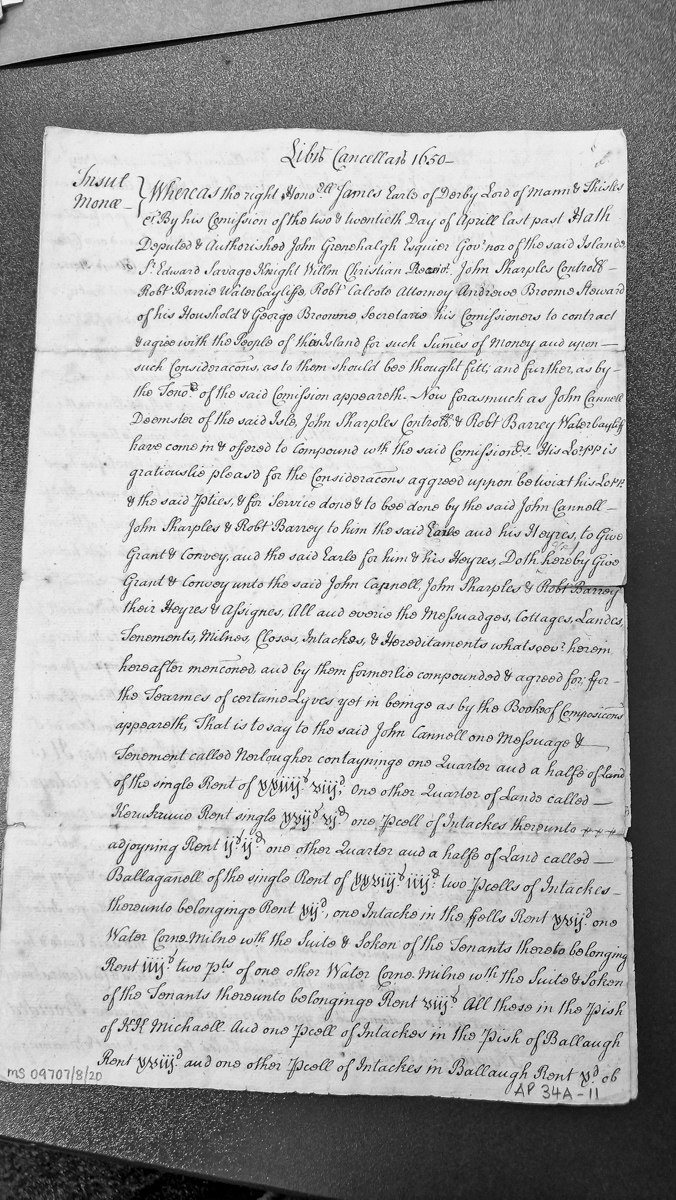 Libr Cancellar 1650
Insul
Monæ } Whereas the right Hono:ble James Earle of Derby Lord of Mann & Thisles
&c By his Comission of the two & twentieth Day of Aprill last past Hath
Deputed & Authorished John Grenehalgh Esquier Gov:nor of the said Islande
Sr. Edward Savage Knight Willm Christian Receivr. John Sharples Controllr
Robt Barrie Waterbayliffe, Robt Calcote Attorney Andrewe Broome Steward
of his Houshold & George Broome, Secretarie his Comissioners to contract
& agree with the People of this Island for such Sumes of Money and upon
such Consideracons, as to them should bee thought fitt; and further, as by
the Tenor of the said Comission appeareth. Now forasmuch as John Cannell
Deemster of the said Isle, John Sharples Controllr & Robt Barrey Waterbayliff
have come in & offered to compound wth the said Comissioners. His Lorpp is
gratiouslie pleas'd for the Consideracons aggreed uppon betwixt his Lorpp
& the said Pties, & for Service done & to bee done by the said John Cannell
John Sharples & Robt Barrey to him the said Earle and his Heyres, to Give
Grant & Convey, and the said Earle for him & his Heyres, Doth hereby Give
Grant & Convey unto the said John Cannell, John Sharples & Robt Barrey
their Heyres & Assignes, All and everie the Messuadges, Cottages, Landes,
Tenements, Milnes, Closes, Intackes, & Hereditaments whatsoevr herein
hereafter menconed, and by them formerlie compounded & agreed for: ffor
the Tearmes of certaine Lyves yet in beinge as by the Booke of Composicons
appeareth, That is to say to the said John Cannell one Messuage &
Tenement called Nerlougher contayninge one Quarter and a halfe of Land
of the single Rent of xxiiijs viijd, One other Quarter of Lande called
Rent single xvijs vjd one Pcell of Intackes thereunto
adjoyning Rent ijs ijd one other Quarter and a halfe of Land called
Ballaganell of the single Rent of xxviijs iiijd two Pcells of Intackes
thereunto belonginge Rent xijd, one Intacke in the ffells Rent xvijd one
Water Corne Milne wth the Suite & Soken of the Tenants thereto belonging
Rent iiijs two Pts of one other Water Corne Milne wth the Suite & Soken
of the Tenants thereunto belonginge Rent viijs All these in the Pish
of KK Michaell And one Pcell of Intackes in the Pish of Ballaugh
Rent xviijd and one other Pcell of Intackes in Ballaugh Rent xd ob
MS 09707/8/20
AP 34A-11